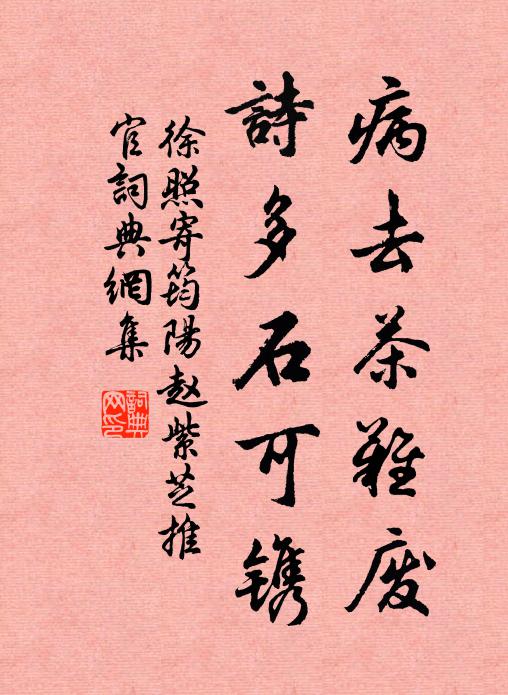 病去茶難废
詩多石可镌
徐照寄筠陽赵紫芝推
官詞典網集
詞典
网印